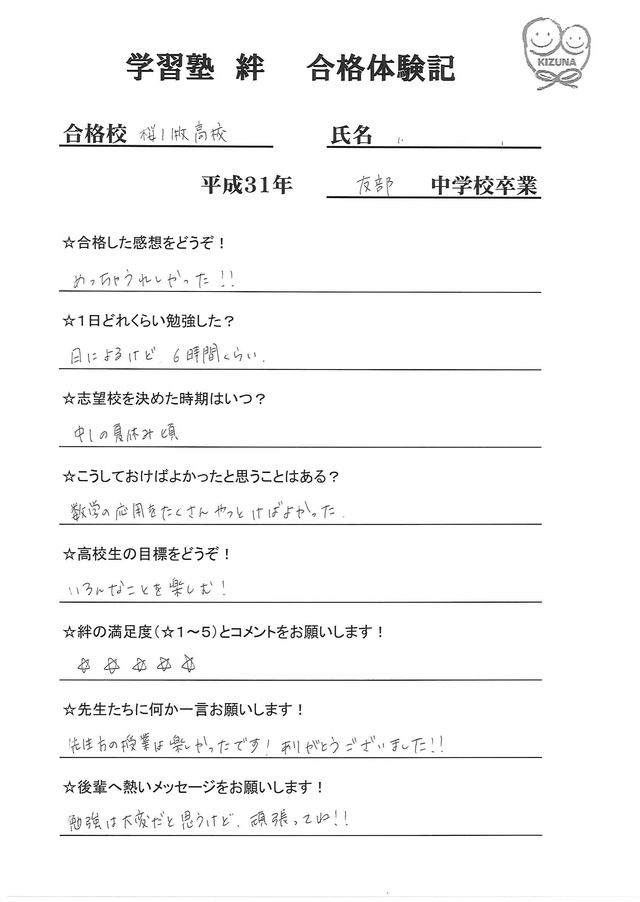 学習塾 絆 合格体験記
KIZUNA
合格校 桜川販高校 氏名
平成31年 友部 中学校卒業
☆合格した感想をどうぞ！
めっちゃうれしかった!!
☆1日どれくらい勉強した？
日によるけど 6時間くらい.
☆志望校を決めた時期はいつ？
中1の夏休み頃
☆こうしておけばよかったと思うことはある？
数学の応用をたくさんやっとけばよかった.
☆高校生の目標をどうぞ！
いろんなことを楽しむ!
☆絆の満足度（☆1～5）とコメントをお願いします！
☆ ☆ ☆ ☆ ☆
☆先生たちに何か一言お願いします！
先生方の授業は楽しかったです! ありがとうございました!!
☆後輩へ熱いメッセージをお願いします！
勉強は大変だと思うけど. 頑張ってね!!